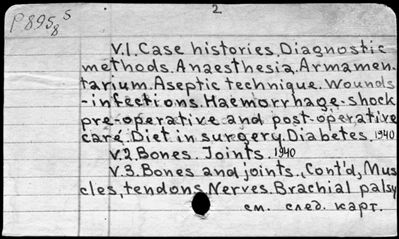 P895 5
8
2
V.1. Case histories. Diagnostic
methods. Anaesthesia. Armamen-
tarium. Aseptic technique. Wounds
-infections. Haemorrhage-shock
pre-operative and post-operative
care. Diet in surgery. Diabetes. 1940
V.2. Bones. Joints. 1940
V.3. Bones and joints., Cont'd, Mus
cles, tendons. Nerves. Brachial palsy
см. след. карт.